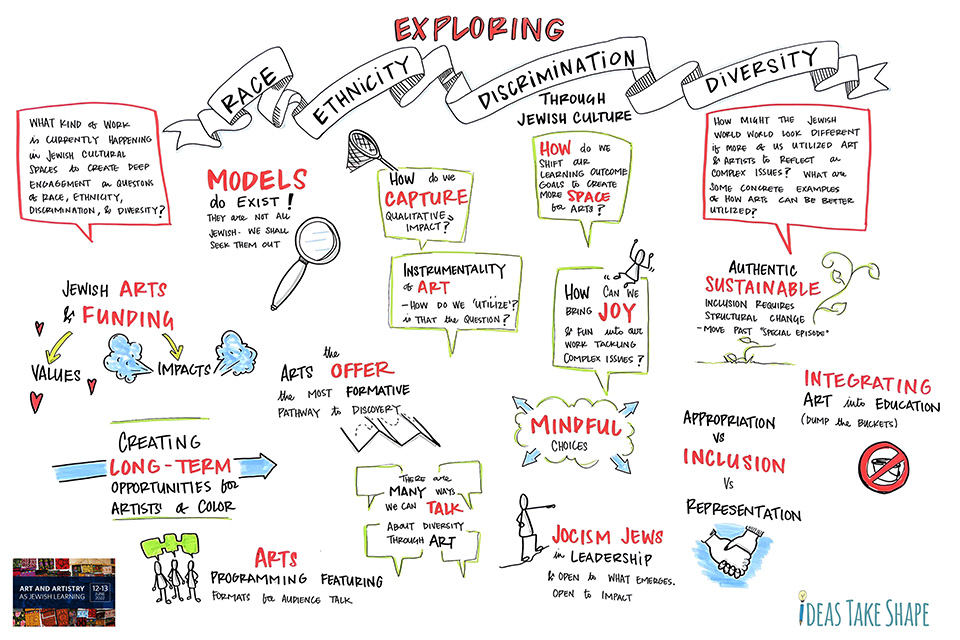 EXPLORING
RACE
ETHNICITY
DISCRIMINATION
DIVERSITY
THROUGH
JEWISH CULTURE
WHAT KIND of WORK
is CURRENTLY HAPPENING
in JEWISH CULTURAL
SPACES to CREATE DEEP
ENGAGEMENT on QUESTIONS
of RACE, ETHNICITY,
DISCRIMINATION, & DIVERSITY?
MODELS
do EXIST!
THEY are NOT ALL
JEWISH. WE SHALL
SEEK THEM OUT
HOW do WE
CAPTURE
QUALITATIVE
IMPACT?
HOW do WE
SHIFT OUR
LEARNING OUTCOME
GOALS to CREATE
MORE SPACE
for ARTS?
HOW MIGHT THE JEWISH
WORLD WORLD LOOK DIFFERENT
if MORE of US UTILIZED ART
& ARTISTS to REFLECT on
COMPLEX ISSUES? WHAT ARE
SOME CONCRETE EXAMPLES
of HOW ARTS CAN BE BETTER
UTILIZED?
JEWISH ARTS
& FUNDING
VALUES
IMPACTS
INSTRUMENTALITY
of ART
- HOW DO WE 'UTILIZE'?
is THAT the QUESTION?
HOW CAN WE
BRING JOY
& FUN into our
WORK TACKLING
COMPLEX ISSUES?
AUTHENTIC
SUSTAINABLE
INCLUSION REQUIRES
STRUCTURAL CHANGE
- MOVE PAST "SPECIAL EPISODE"
the
ARTS OFFER
the MOST FORMATIVE
PATHWAY to DISCOVERY
INTEGRATING
ART into EDUCATION
(DUMP the BUCKETS)
CREATING
LONG-TERM
OPPORTUNITIES for
ARTISTS of COLOR
MINDFUL
CHOICES
APPROPRIATION
VS
INCLUSION
VS
REPRESENTATION
THERE are
MANY WAYS
WE CAN TALK
ABOUT DIVERSITY
THROUGH ART
ARTS
PROGRAMMING FEATURING
FORMATS for AUDIENCE TALK
JOCISM JEWS
in LEADERSHIP
& OPEN to WHAT EMERGES.
OPEN to IMPACT
ART AND ARTISTRY
AS JEWISH LEARNING
12-13
JUNE
2022
IDEAS TAKE SHAPE